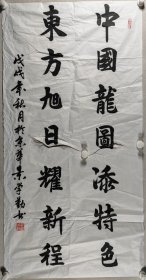 中國龍圖添特色
東方旭日耀新程
戊戌年秋月於京華